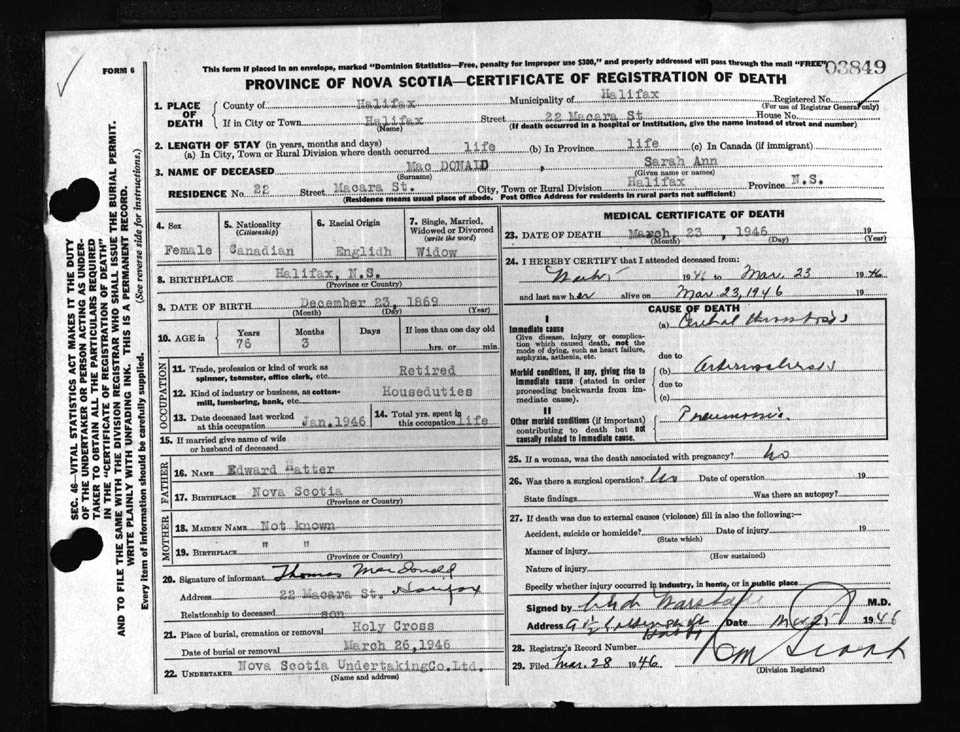 FORM 6
This form if placed in an envelope, marked "Dominion Statistics—Free, penalty for improper use $300," and properly addressed will pass through the mail "FREE"
03849
PROVINCE OF NOVA SCOTIA—CERTIFICATE OF REGISTRATION OF DEATH
SEC. 46—VITAL STATISTICS ACT MAKES IT THE DUTY
OF THE UNDERTAKER OR PERSON ACTING AS UNDER-
TAKER TO OBTAIN ALL THE PARTICULARS REQUIRED
IN THE "CERTIFICATE OF REGISTRATION OF DEATH"
AND TO FILE THE SAME WITH THE DIVISION REGISTRAR WHO SHALL ISSUE THE BURIAL PERMIT.
WRITE PLAINLY WITH UNFADING INK. THIS IS A PERMANENT RECORD.
Every item of information should be carefully supplied. (See reverse side for instructions.)
1. PLACE OF DEATH
County of Halifax Municipality of Halifax Registered No.
(For use of Registrar General only)
If in City or Town Halifax Street 22 Macara St House No.
(Name) (If death occurred in a hospital or institution, give the name instead of street and number)
2. LENGTH OF STAY (in years, months and days)
(a) In City, Town or Rural Division where death occurred life (b) In Province life (c) In Canada (if immigrant)
3. NAME OF DECEASED Mac DONALD , Sarah Ann
(Surname) (Given name or names)
RESIDENCE No. 22 Street Macara St. City, Town or Rural Division Halifax Province N.S.
(Residence means usual place of abode. Post Office Address for residents in rural parts not sufficient)
4. Sex Female
5. Nationality (Citizenship) Canadian
6. Racial Origin Englidh
7. Single, Married, Widowed or Divorced (write the word) Widow
8. BIRTHPLACE Halifax, N.S.
(Province or Country)
9. DATE OF BIRTH December 23, 1869
(Month) (Day) (Year)
10. AGE in Years 76 Months 3 Days If less than one day old hrs. or min.
OCCUPATION
11. Trade, profession or kind of work as spinner, teamster, office clerk, etc. Retired
12. Kind of industry or business, as cotton mill, lumbering, bank, etc. Houseduties
13. Date deceased last worked at this occupation Jan.1946
14. Total yrs. spent in this occupation life
15. If married give name of wife or husband of deceased
FATHER
16. NAME Edward Hatter
17. BIRTHPLACE Nova Scotia
(Province or Country)
MOTHER
18. MAIDEN NAME Not known
19. BIRTHPLACE " "
(Province or Country)
20. Signature of informant Thomas MacDonald
Address 22 Macara St. Halifax
Relationship to deceased son
21. Place of burial, cremation or removal Holy Cross
Date of burial or removal March 26,1946
22. UNDERTAKER Nova Scotia UndertakingCo.Ltd.
(Name and address)
MEDICAL CERTIFICATE OF DEATH
23. DATE OF DEATH March, 23 , 1946 19
(Month) (Day) (Year)
24. I HEREBY CERTIFY that I attended deceased from:
1946 to Mar. 23 1946
and last saw her alive on Mar. 23, 1946
CAUSE OF DEATH
I
Immediate cause
Give disease, injury or complica-
tion which caused death, not the
mode of dying, such as heart failure,
asphyxia, asthenia, etc.
(a) Cerebral thrombosis
due to
Morbid conditions, if any, giving rise to
immediate cause (stated in order
proceeding backwards from im-
mediate cause).
(b) Arteriosclerosis
due to
(c)
II
Other morbid conditions (if important)
contributing to death but not
causally related to immediate cause.
25. If a woman, was the death associated with pregnancy? No
26. Was there a surgical operation? No Date of operation 19
State findings Was there an autopsy?
27. If death was due to external causes (violence) fill in also the following:—
Accident, suicide or homicide? Date of injury 19
(State which)
Manner of injury
(How sustained)
Nature of injury
Specify whether injury occurred in industry, in home, or in public place
Signed by M.D.
Address Date Mar 25 1946
28. Registrar's Record Number
29. Filed Mar. 28 1946
(Division Registrar)